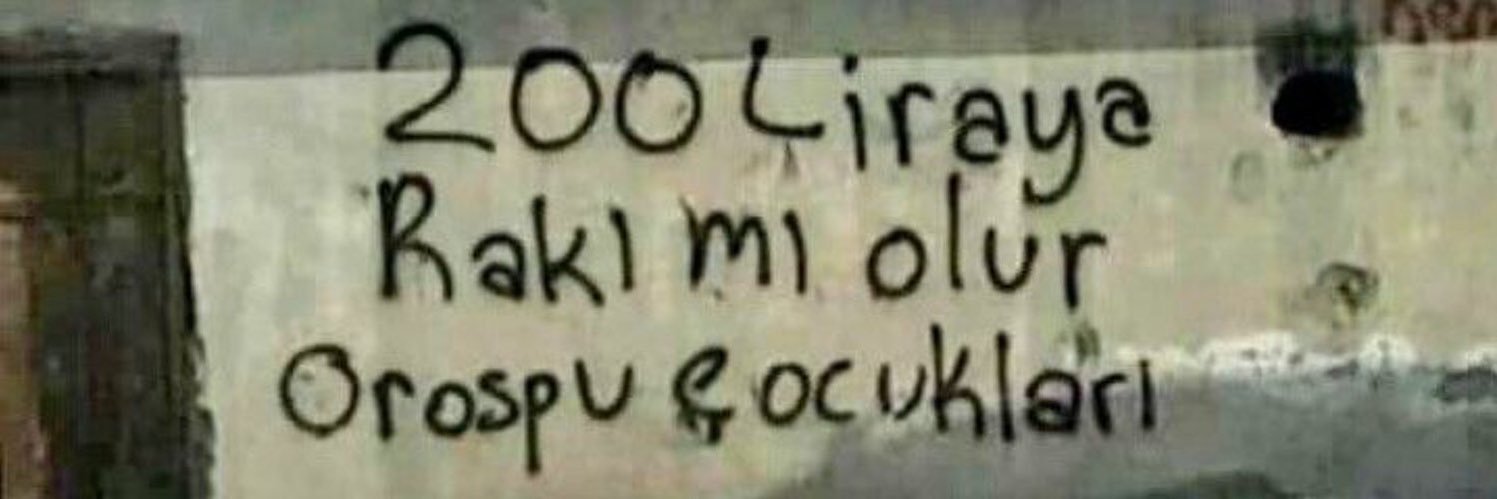 200 Liraya
Rakı mı olur
Orospu Çocukları